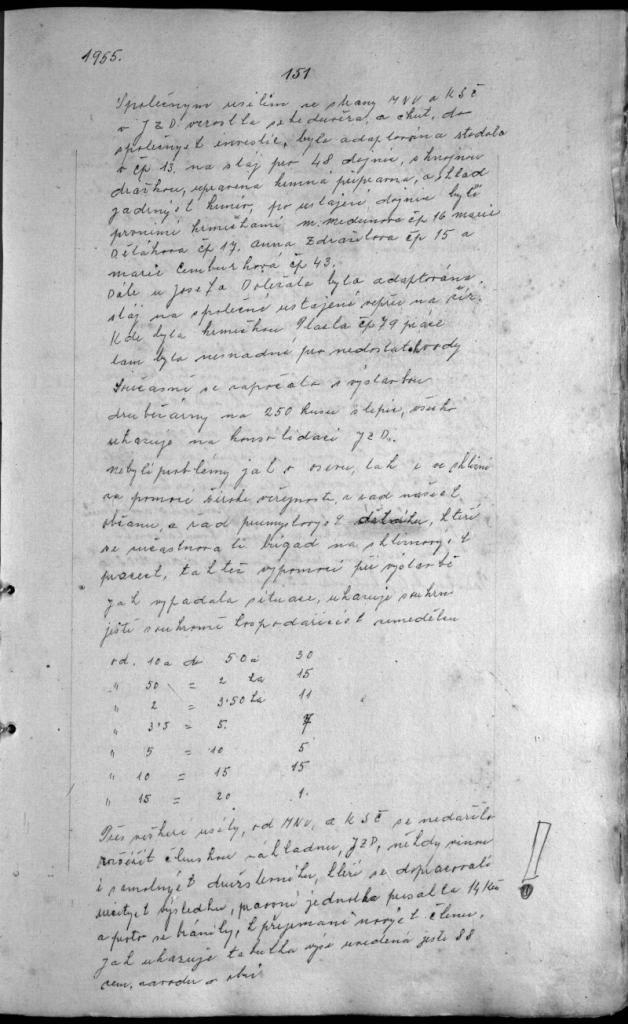 1955.
151
Společným usilím se strany MNV a KSČ
v JZD. vzrostla sebedůvěra, a chut, do
společnyct investic, byla adaptována stodola
v čp 13. na stáj pro 48 dojnic, s hnojnou
drážkou, upravena krmná přípravna, a sklad
jadrnýct krmiv, po ustájení dojnic byli
prvními krmičkami m. čp 16 marie
čp 17. anna Zdražilova čp 15 a
marie Cemburková čp 43.
Dále u Josefa Doležala byla adaptována
stáj na společné ustájení vepřu na žír.
Kde byla krmičkou čp 79 práce
tam byla nesnadná pro nedostatek vody
Současně se započalo s výstavbou
drubežárny na 250 kusu slepic, všecko
ukazuje na konsolidaci JZD.
nebyli problémy jak v osevu, tak i ve sklizni
za pomoci široke veřejnosti, z řad našict
občanu, a řad prumyslovyct dělníku, kteří
se učastnova li brigád na sklizňovyct
pracect, taktéž vypomoci při výstavbě
Jak vypadala situace, ukazuje souhrn
ještě soukromě hospodařícict zemědělcu
od. 10a do 50a 30
" 50 = 2 ha 15
" 2 = 3'50 ha 11
" 3'5 = 5. 7
" 5 = 10 5
" 10 = 15 15
" 15 = 20 1.
Přes veškere usílý, od MNV, a KSČ se nedařilo
rozšířit členskou základnu, JZD, někdy vinou
i samotnýct družstevníku, kteří se dopracovali
určityct výsledku, pracovní jednotka presahla 14 Kčs
a proto se bránily, k přijemaní novyct členu,
Jak ukazuje tabulka výše uvedená ještě 88
zem. zavodu v obci